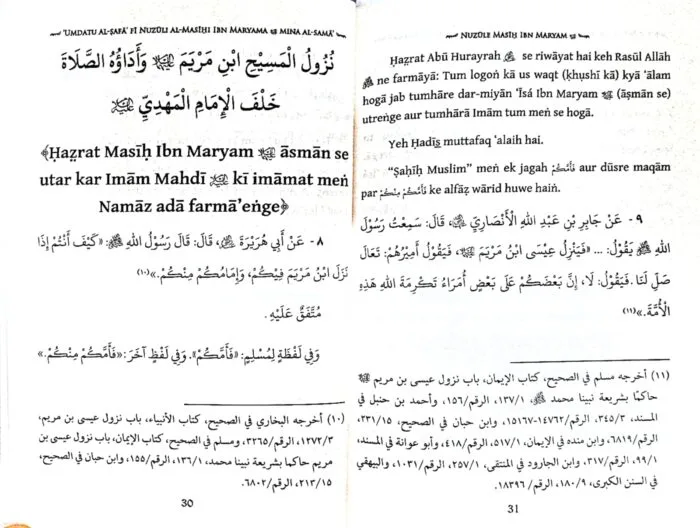 'UMDATU AL-ṢAFĀ' FĪ NUZŪLI AL-MASĪḤI IBN MARYAMA ﷤ MINA AL-SAMĀ'
نُزُولُ الْمَسِيْحِ ابْنِ مَرْيَمَ ﷤ وَأَدَاؤُهُ الصَّلَاةَ
خَلْفَ الْإِمَامِ الْمَهْدِيِّ ﷤
﴾Ḥaẓrat Masīḥ Ibn Maryam ﷤ āsmān se
utar kar Imām Mahdī ﷤ kī imāmat meṅ
Namāz adā farmā'eṅge﴿
٨ - عَنْ أَبِي هُرَيْرَةَ ﷜، قَالَ: قَالَ رَسُوْلُ اللهِ ﷺ: «كَيْفَ أَنْتُمْ إِذَا
نَزَلَ ابْنُ مَرْيَمَ فِيْكُمْ، وَإِمَامُكُمْ مِنْكُمْ.»(١٠)
مُتَّفَقٌ عَلَيْهِ.
وَفِي لَفْظَةٍ لِمُسْلِمٍ: «فَأَمَّكُمْ». وَفِي لَفْظٍ آخَرَ: «فَأَمَّكُمْ مِنْكُمْ.»
(١٠) أخرجه البخاري في الصحيح، كتاب الأنبياء، باب نزول عيسى بن مريم،
٣/١٢٧٢، الرقم/٣٢٦٥، ومسلم في الصحيح، كتاب الإيمان، باب نزول عيسى بن
مريم حاكما بشريعة نبينا محمد، ١/١٣٦، الرقم/١٥٥، وابن حبان في الصحيح،
١٥/٢١٣، الرقم/٦٨٠٢.
30
NUZŪLE MASĪḤ IBN MARYAM ﷤
Ḥaẓrat Abū Hurayrah ﷜ se riwāyat hai keh Rasūl Allāh
ﷺ ne farmāyā: Tum logoṅ kā us waqt (ḳhushī kā) kyā 'ālam
hogā jab tumhāre dar-miyān 'Īsá Ibn Maryam (āsmān se)
utreṅge aur tumhārā Imām tum meṅ se hogā.
Yeh Ḥadīs̱ muttafaq 'alaih hai.
"Ṣaḥīḥ Muslim" meṅ ek jagah فَأَمَّكُمْ aur dūsre maqām
par فَأَمَّكُمْ مِنْكُمْ ke alfāẓ wārid huwe haiṅ.
٩ - عَنْ جَابِرِ بْنِ عَبْدِ اللهِ الْأَنْصَارِيِّ ﷜، قَالَ: سَمِعْتُ رَسُوْلَ
اللهِ ﷺ يَقُوْلُ: ... «فَيَنْزِلُ عِيْسَى ابْنُ مَرْيَمَ ﷤، فَيَقُوْلُ أَمِيْرُهُمْ: تَعَالَ
صَلِّ لَنَا. فَيَقُوْلُ: لَا، إِنَّ بَعْضَكُمْ عَلَى بَعْضٍ أُمَرَاءُ تَكْرِمَةَ اللهِ هَذِهِ
الْأُمَّةَ.»(١١)
(١١) أخرجه مسلم في الصحيح، كتاب الإيمان، باب نزول عيسى بن مريم ﷤
حاكمًا بشريعة نبينا محمد ﷺ، ١/١٣٧، الرقم/١٥٦، وأحمد بن حنبل في
المسند، ٣/٣٤٥، الرقم/١٤٧٦٢-١٥١٦٧، وابن حبان في الصحيح، ١٥/٢٣١،
الرقم/٦٨١٩، وابن منده في الإيمان، ١/٥١٧، الرقم/٤١٨، وأبو عوانة في المسند،
١/٩٩، الرقم/٣١٧، وابن الجارود في المنتقى، ١/٢٥٧، الرقم/١٠٣١، والبيهقي
في السنن الكبرى، ٩/١٨٠، الرقم/١٨٣٩٦.
31